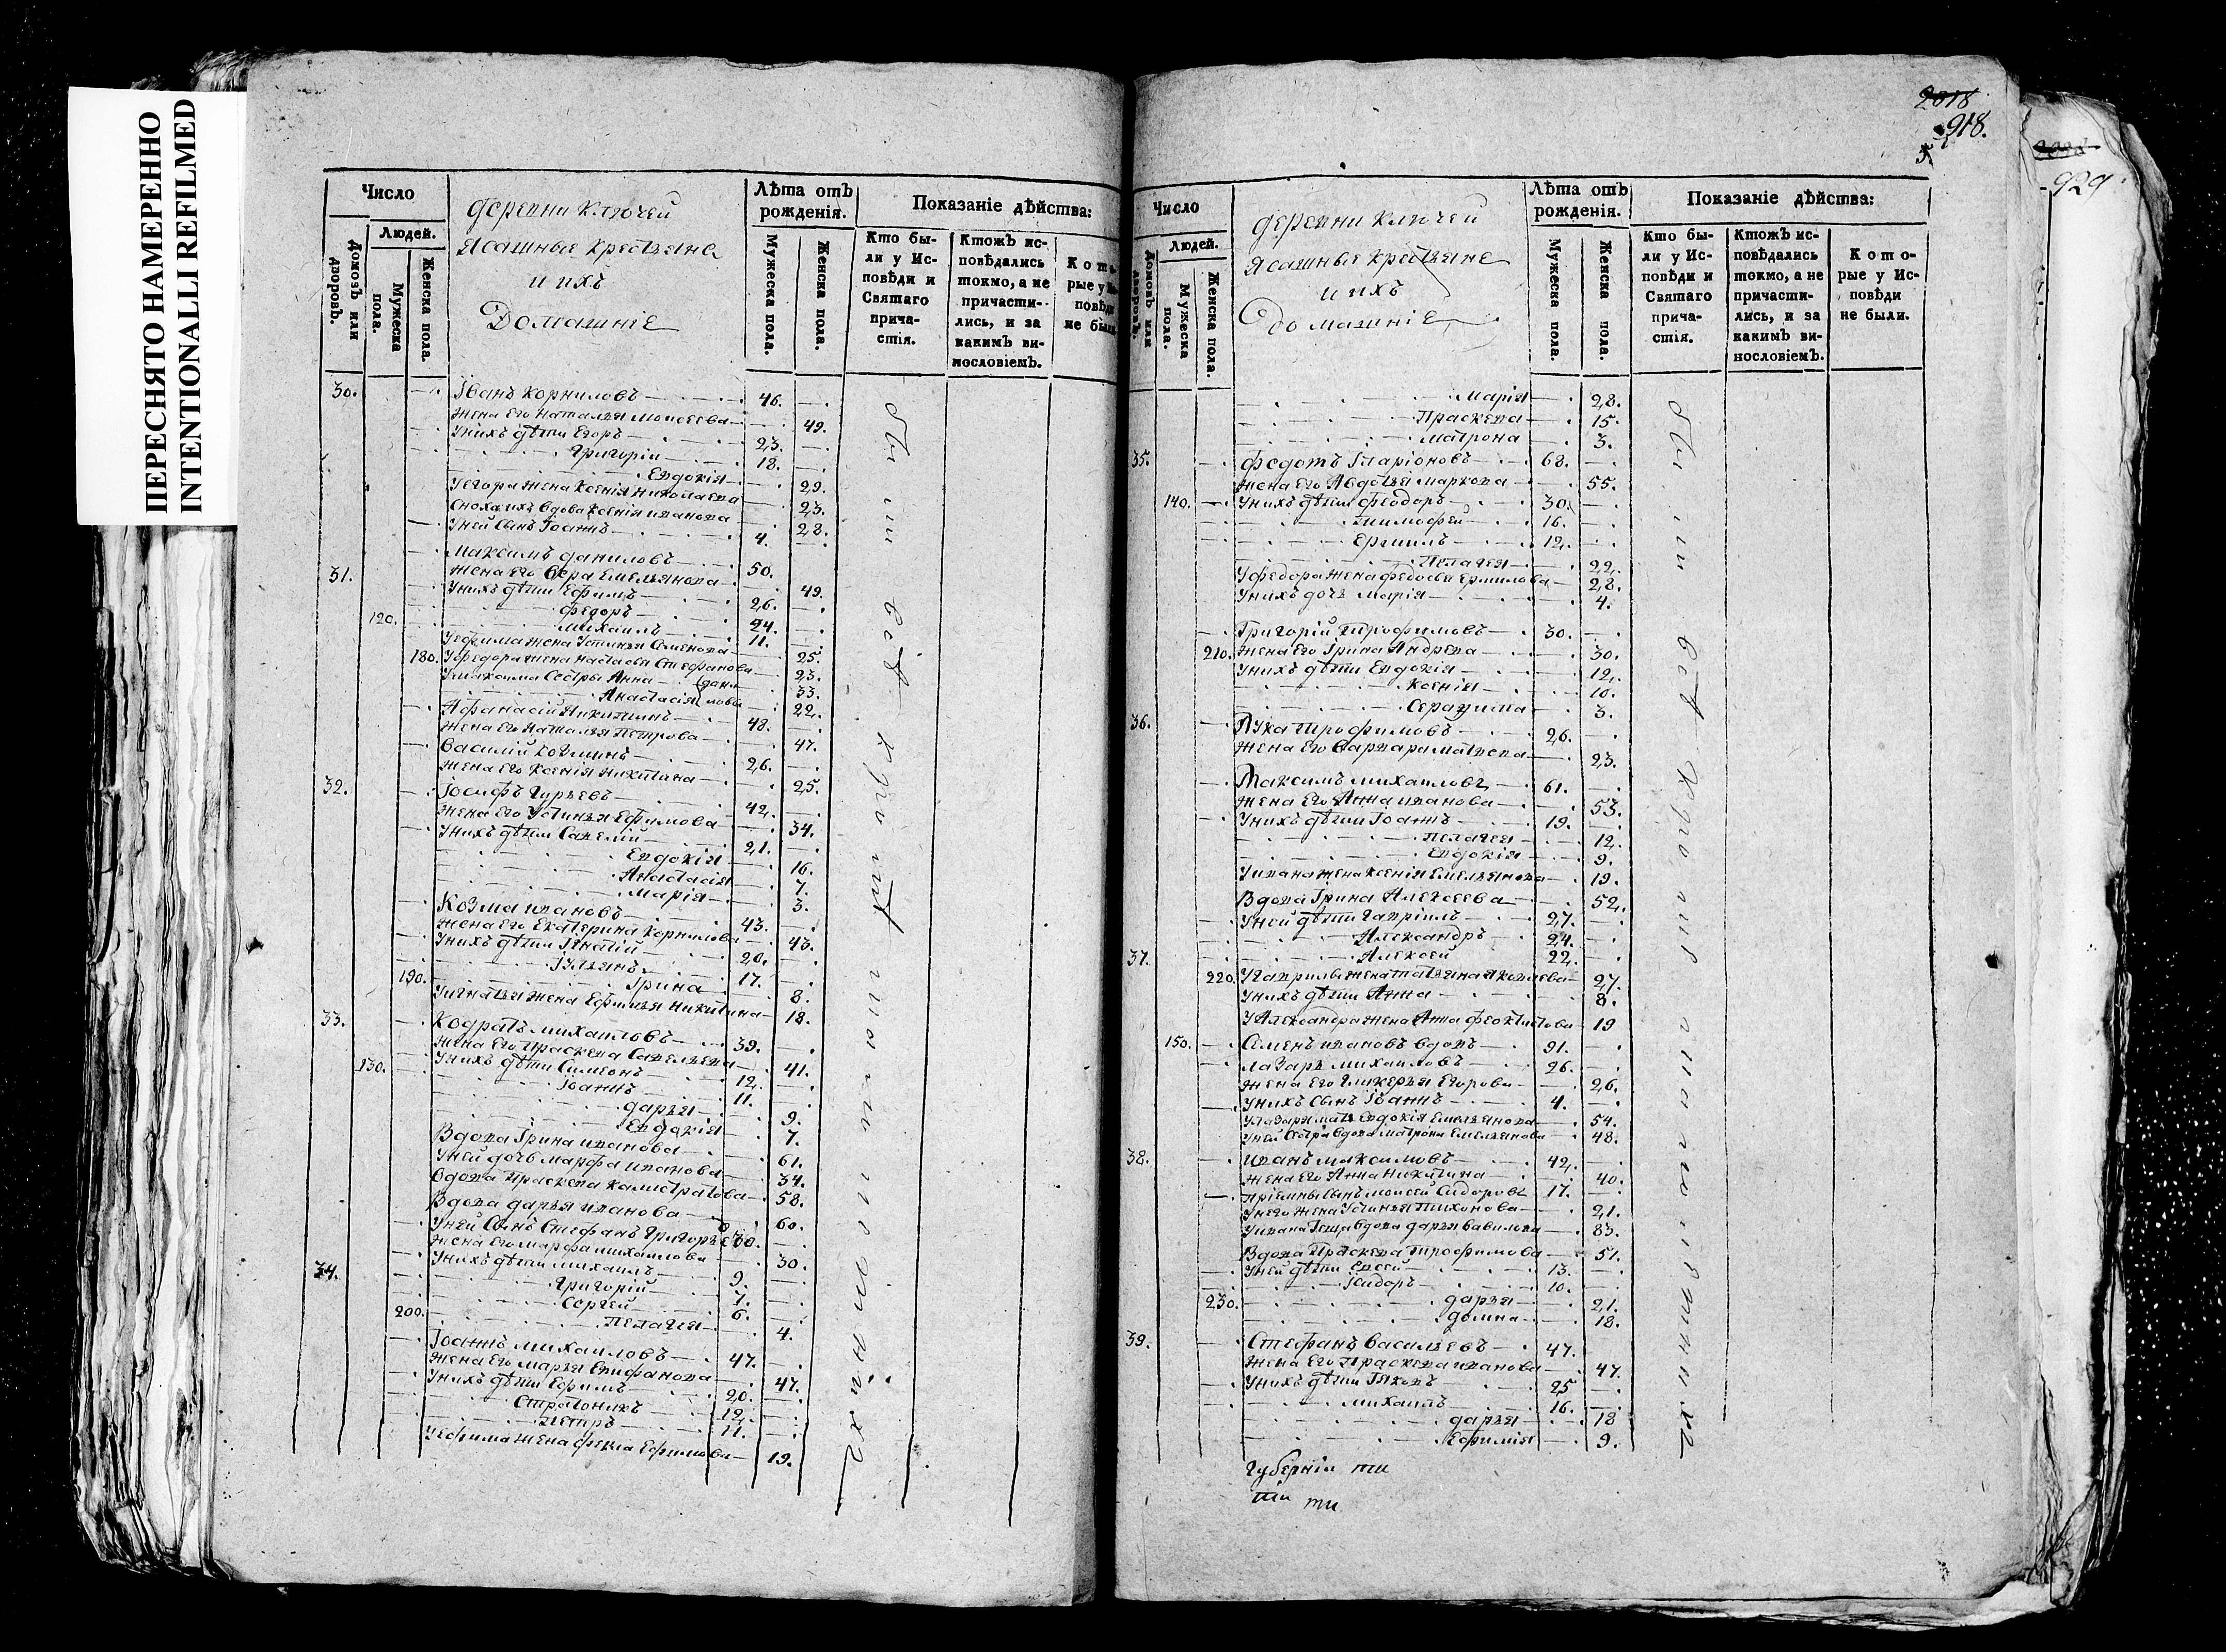 ПЕРЕСНЯТО НАМЕРЕННО
INTENTIONALLI REFILMED
Число
Людей.
Домовъ или дворовъ.
Мужеска пола.
Женска пола.
деревни Ключей
Ясашные крестьяне
и ихъ
Домашніе
Лѣта отъ рожденія.
Мужеска пола.
Женска пола.
Показаніе дѣйства:
Кто бы-
ли у Ис-
повѣди и
Святаго
прича-
стія.
Ктожъ ис-
повѣдались
токмо, а не
причасти-
лись, и за
какимъ ви-
нословіемъ.
30. Іванъ Корниловъ 46.
жена его Наталья Моисеева 49.
У нихъ дѣти Егоръ 23.
Григорій 18.
Евдокія
У Егора жена Ксенія Николаева 29.
Сноха ихъ вдова Ксенія Иванова 23.
У ней сынъ Іоаннъ 28. 4.
31. Максимъ Даниловъ 50.
жена его Вера Емельянова 49.
У нихъ дѣти Ефимъ 26.
120. Федоръ 24.
Михаилъ 11.
У Ефима жена Устинья Семенова 25.
180. У Федора жена Настасья Стефанова 23.
У Максима сестры Анна 33.
Анастасія 22.
Афанасій Никитинъ 48.
жена его Наталья Петрова 47.
Василій 26.
жена его Ксенія Никитина 25.
32. Іосифъ Гурьевъ 42.
жена его Устинья Ефимова 34.
У нихъ дѣти Савелій 21.
Евдокія 16.
Анастасія 7.
Марія 3.
Козма Ивановъ 43.
жена его Екатерина Корнилова 43.
У нихъ дѣти Игнатій 20.
Іульянъ 17.
190. Ірина 8.
У Игнатья жена Ефимья Никитина 18.
33. Кодратъ Михаиловъ 39.
жена его Праскева Савельева 41.
130. У нихъ дѣти Симеонъ 12.
Іоаннъ 11.
Дарья 9.
Евдокія 7.
Вдова Ірина Иванова 61.
У ней дочь Марфа Иванова 34.
Вдова Праскева Калистратова 58.
Вдова Дарья Иванова 60.
У ней сынъ Стефанъ Григорьевъ 30.
жена его Марфа Михаилова 30.
34. У нихъ дѣти Михаилъ 9.
Григорій 7.
Сергей 6.
200. Пелагея 4.
Іоаннъ Михаиловъ 47.
жена его Марья Епифанова 47.
У нихъ дѣти Ефимъ 20.
Стратоникъ 12.
Петръ 11.
У Ефима жена Фекла Ефимова 19.
2018
918.
929
Число
Людей.
Домовъ или дворовъ.
Мужеска пола.
Женска пола.
деревни Ключей
Ясашные крестьяне
и ихъ
домашніе
Лѣта отъ рожденія.
Мужеска пола.
Женска пола.
Показаніе дѣйства:
Кто бы-
ли у Ис-
повѣди и
Святаго
прича-
стія.
Ктожъ ис-
повѣдались
токмо, а не
причасти-
лись, и за
какимъ ви-
нословіемъ.
Кото-
рые у Ис-
повѣди
не были.
Марія 28.
Праскева 15.
Матрона 3.
35. Федотъ Іларіоновъ 68.
жена его Авдотья Маркова 55.
140. У нихъ дѣти Феодоръ 30.
Тимофей 16.
Ермилъ 12.
Пелагея 22.
У Федора жена Федосья Ермилова 28.
У нихъ дочь Марія 4.
Григорій Трофимовъ 30.
210. жена его Ірина Андрева 30.
У нихъ дѣти Евдокія 12.
Ксенія 10.
Серафима 3.
36. Лука Трофимовъ 26.
жена его Варвара Матвева 23.
Максимъ Михаиловъ 61.
жена его Анна Иванова 53.
У нихъ дѣти Іоаннъ 19.
Пелагея 12.
Евдокія 9.
У Ивана жена Ксенія Емельянова 19.
Вдова Ірина Алексеева 52.
У ней дѣти Гавріилъ 27.
Александръ 24.
37. Алексей 22.
220. У Гаврилы жена Татьяна 27.
У нихъ дѣти Анна 8.
У Александра жена Анна Феоктистова 19
150. Семенъ Ивановъ вдовъ 91.
Лазарь Михаиловъ 26.
жена его Гликерья Егорова 26.
У нихъ сынъ Іоаннъ 4.
У Лазаря мать Евдокія Емельянова 54.
У ней сестра вдова Матрона Емельянова 48.
38. Иванъ Максимовъ 42.
жена его Анна Никитина 40.
Пріемный сынъ Моисей Сидоровъ 17.
У него жена Устинья Тихонова 21.
У Ивана теща вдова Дарья Вавилова 83.
Вдова Праскева Трофимова 51.
У ней дѣти 13.
Ісидоръ 10.
230. Дарья 21.
Домна 18.
39. Стефанъ Васильевъ 47.
жена его Праскева Иванова 47.
У нихъ дѣти Іяковъ 25
Михаилъ 16.
Дарья 18
Ефимія 9.
Губерніи ти
ти ти